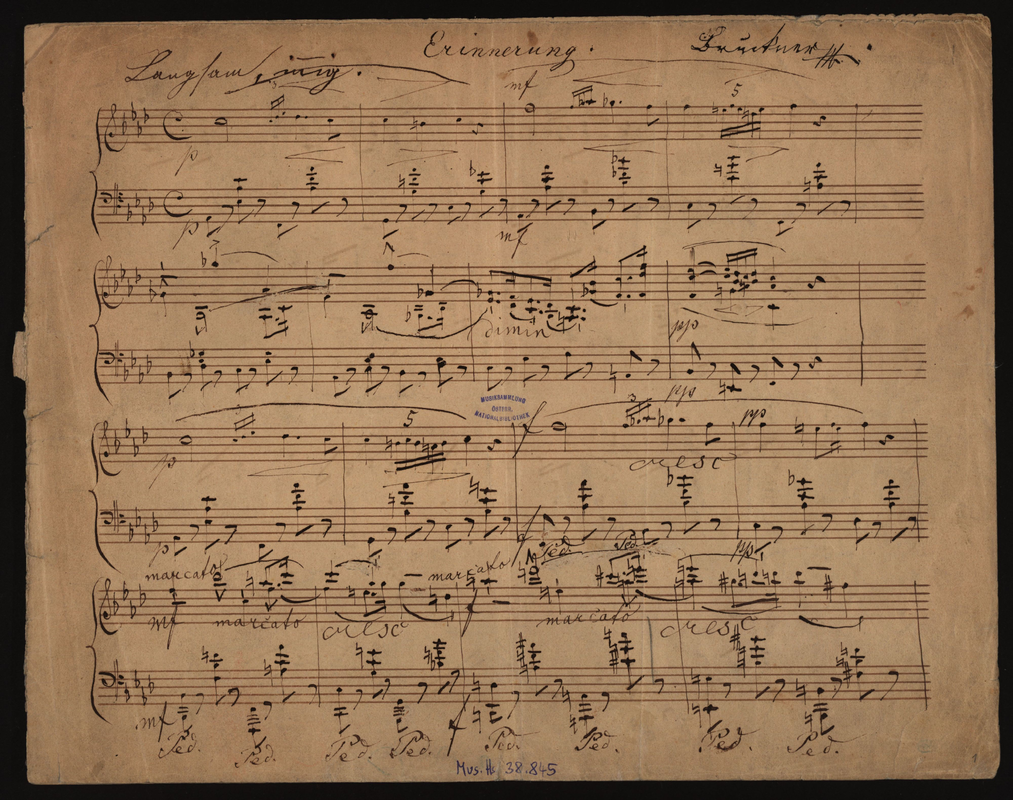 Erinnerung. Bruckner
Langsam, innig.
mf
3
5
p
p
mf
dimin
pp
pp
MUSIKSAMMLUNG
ÖSTERR.
NATIONALBIBLIOTHEK
3
5
f
3
pp
p
cresc
p
f
Ped. Ped.
pp
marcato
marcato
mf
marcato
cresc
f
marcato
cresc
mf
f
Ped. Ped. Ped. Ped. Ped. Ped. Ped. Ped.
Mus. Hs 38.845